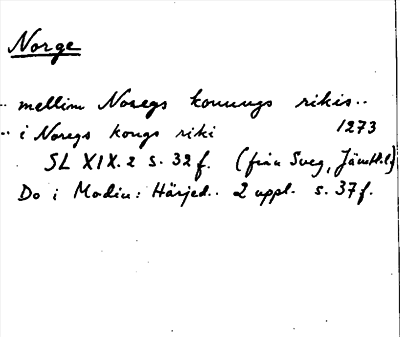 Norge
.. mellim Noregs konungs rikis..
.. i Noregs kongs riki 1273
SL XIX.2 s. 32 f. (från Sveg, Jämtl.l)
Do i Modin: Härjed.. 2 uppl. s. 37f.